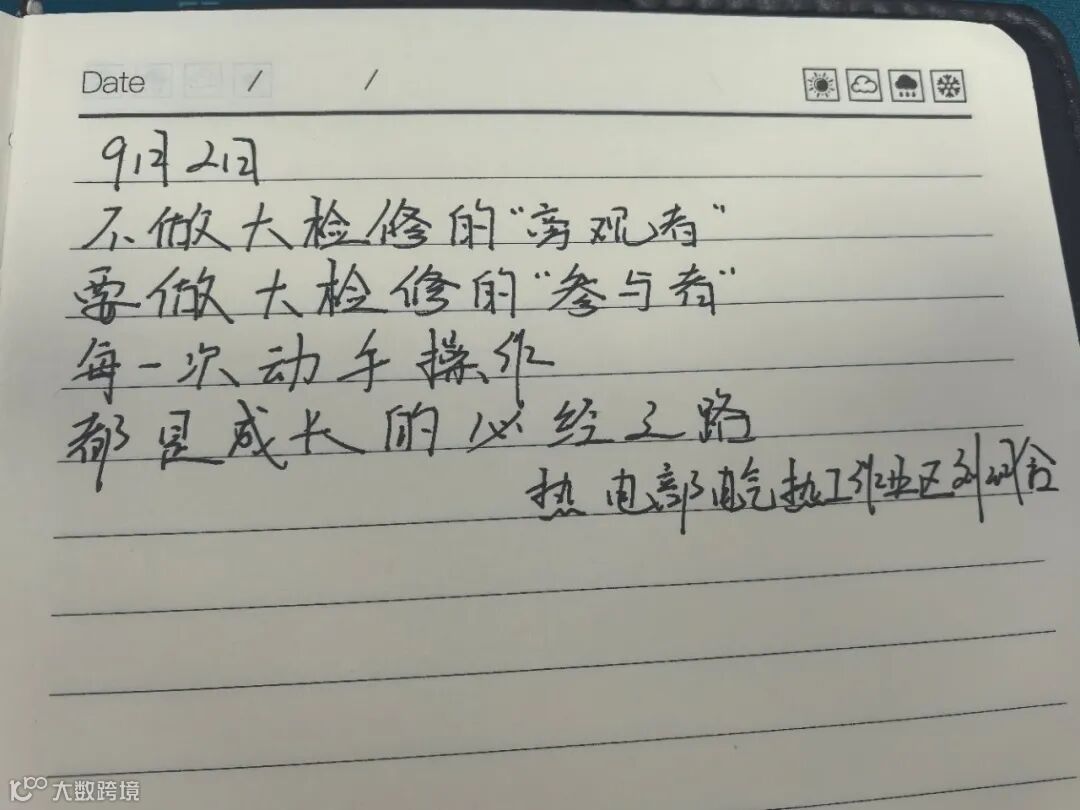 Date / /
9月2日
不做大检修的“旁观者”
要做大检修的“参与者”
每一次动手操作
都是成长的必经之路
热电部电气热工作业区刘
大数跨境